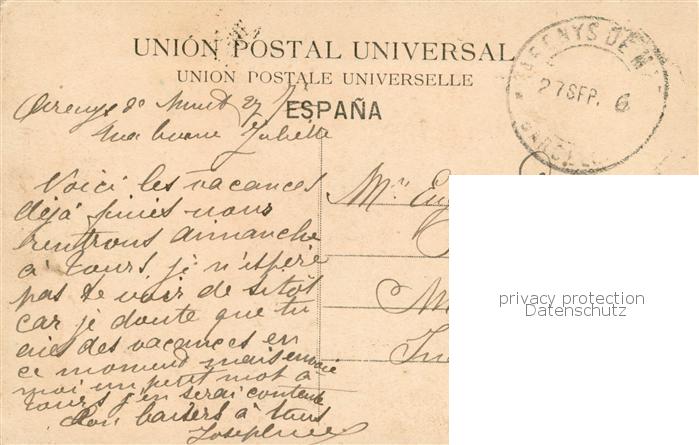 UNIÓN POSTAL UNIVERSAL
UNION POSTALE UNIVERSELLE
ESPAÑA
ARENYS DE M
27 SEP. 6
Arenys de Munt 27
Ma bonne Juliette
Voici les vacances
déjà finies nous
rentrons dimanche
à tours, je n'espère
pas te voir de sitôt
car je doute que tu
aies des vacances en
ce moment mais envoie
moi un petit mot à
tours j'en serai contente
Bon baisers à tous
Joséphine
Mlle Eug
M
privacy protection
Datenschutz